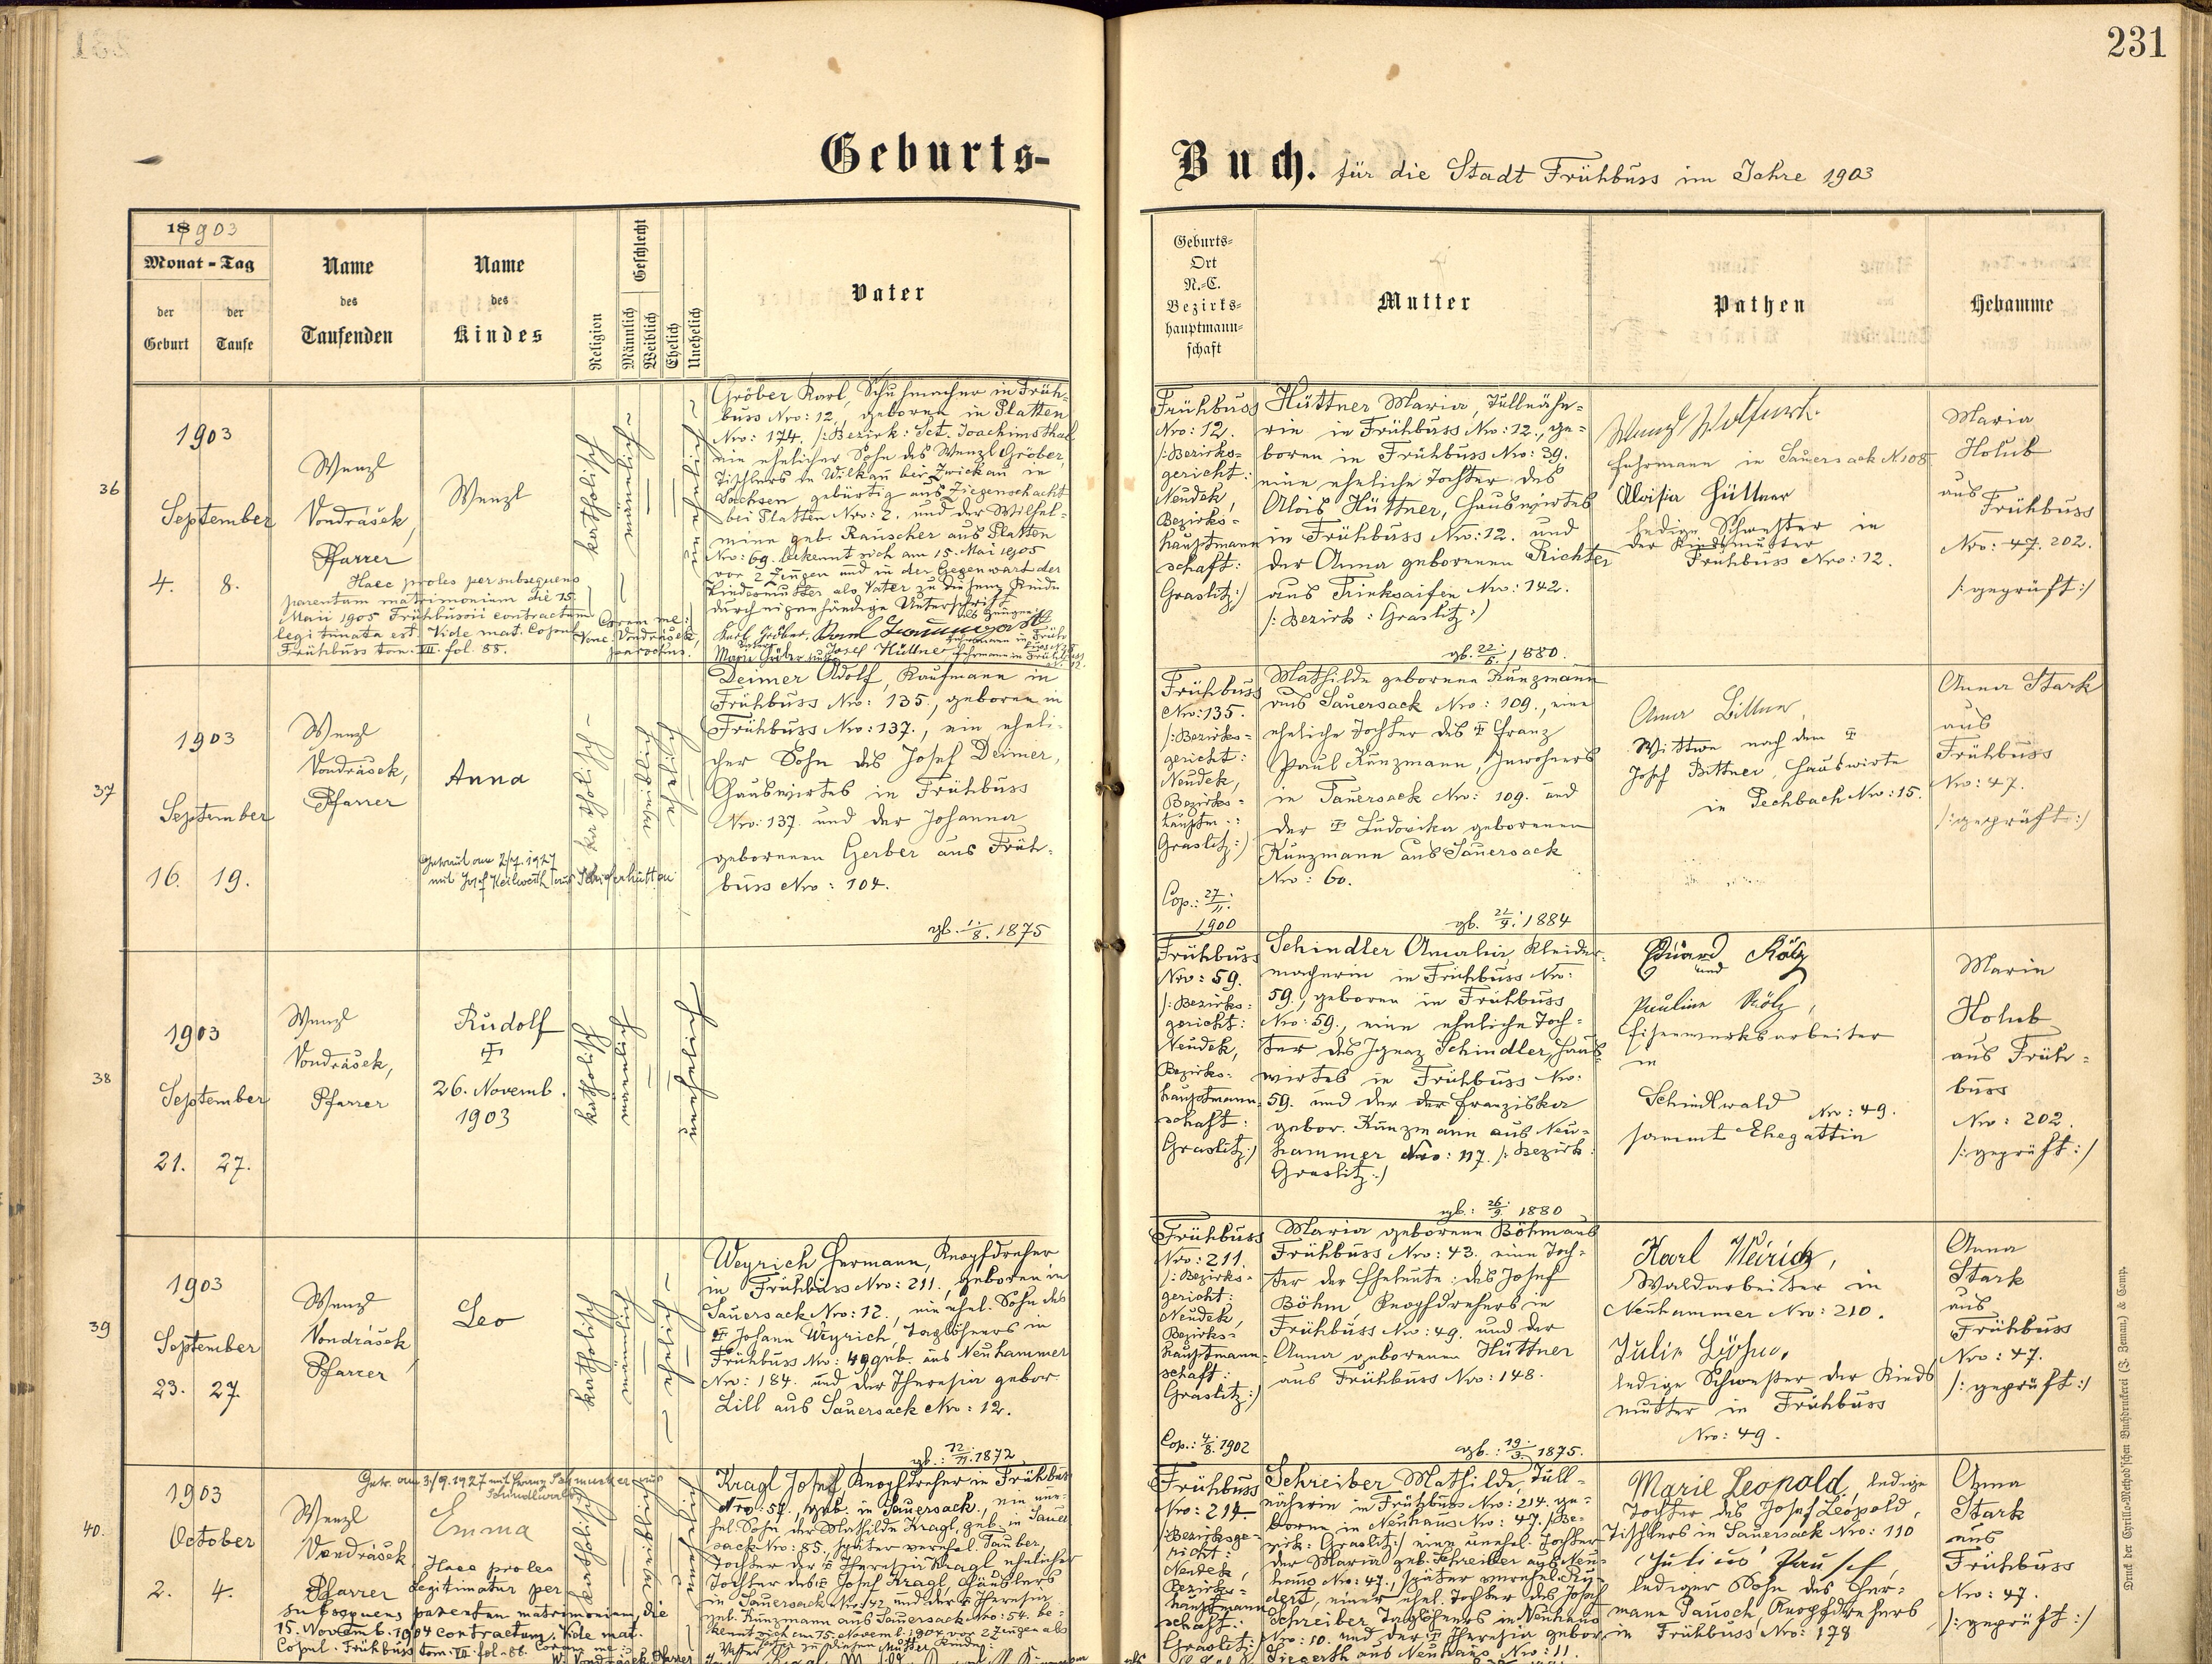 231
Geburts-
Buch. für die Stadt Frühbuss im Jahre 1903
1903
Monat - Tag
der Geburt
der Taufe
Name des Taufenden
Name des Kindes
Religion
Geschlecht
Männlich
Weiblich
Ehelich
Unehelich
Vater
Geburts-
Ort
N.-C.
Bezirks-
hauptmann-
schaft
Mutter
Pathen
Hebamme
36
1903
September
4. 8.
Wenzl
Vondrášek,
Pfarrer
Wenzl
katholisch
Haec proles per subsequens
parentum matrimonium die 15.
Maii 1905 Frühbussii contractum
legitimata est. Vide mat. Copul.
Frühbuss tom. VII. fol. 88.
Coram me:
Venc. Vondrášek,
parochus.
Gröber Karl, Schuhmacher in Früh-
buss Nro: 12, geboren in Platten
Nro: 174. /:Bezirk: Sct. Joachimsthal
ein ehelicher Sohn des Wenzl Gröber,
Tischlers in Wilkau bei Zwickau in
Sachsen, gebürtig aus Ziegenschacht
bei Platten Nro: 2. und der Wilhel-
mine geb. Rauscher aus Platten
Nro: 69. bekennt sich am 15. Mai 1905
vor 2 Zeugen und in der Gegenwart der
Kindesmutter als Vater zu diesem Kinde
durch eigenhändige Unterschrift
als Zeugen:
Karl Gröber,
Vater
Maria Gröber Mutter
Josef Hüttner Fuhrmann in Frühbuss
Nr. 12.
Frühbuss
Nro: 12.
/:Bezirks-
gericht:
Neudek,
Bezirks-
hauptmann
schaft:
Graslitz:/
Hüttner Maria, Tüllnähe-
rin in Frühbuss Nro: 12., ge-
boren in Frühbuss Nro: 39.
eine eheliche Tochter des
Alois Hüttner, Hauswirtes
in Frühbuss Nro: 12. und
der Anna geborenen Richter
aus Trinksaifen Nro: 142.
/:Bezirk: Graslitz:/
gb. 22./5. 1880.
Fuhrmann in Sauersack N 108
Aloisia Hüttner
ledige Schwester in
der Kindsmutter
Frühbuss Nro: 12.
Maria
Holub
aus
Frühbuss
Nro: 47. 202.
/:geprüft:/
37
1903
September
16. 19.
Wenzl
Vondrášek,
Pfarrer
Anna
katholisch
Deimer Adolf, Kaufmann in
Frühbuss Nro: 135., geboren in
Frühbuss Nro: 137., ein eheli-
cher Sohn des Josef Deimer,
Hauswirtes in Frühbuss
Nro: 137. und der Johanna
geborenen Gerber aus Früh-
buss Nro: 104.
gb. 1./8. 1875
Frühbuss
Nro: 135.
/:Bezirks-
gericht:
Neudek,
Bezirks-
hauptm.:
Graslitz:/
Cop.: 27./11.
1900
Mathilde geborene Kunzmann
aus Sauersack Nro: 109., eine
eheliche Tochter des † Franz
Paul Kunzmann, Inwohners
in Sauersack Nro: 109. und
der † Ludovika geborenen
Kunzmann aus Sauersack
Nro: 60.
gb. 21./9. 1884
Anna Bittner,
Wittwe nach dem †
Josef Bittner, Hauswirte
in Pechbach Nro: 15.
Anna Stark
aus
Frühbuss
Nro: 47.
/:geprüft:/
38
1903
September
21. 27.
Wenzl
Vondrášek,
Pfarrer
Rudolf
†
26. Novemb.
1903
katholisch
Frühbuss
Nro: 59.
/:Bezirks-
gericht:
Neudek,
Bezirks-
hauptmann-
schaft:
Graslitz:/
Schindler Amalia, Kleider-
macherin in Frühbuss Nro:
59., geboren in Frühbuss
Nro: 59., eine eheliche Toch-
ter des Ignaz Schindler, Haus-
wirtes in Frühbuss Nro:
59. und der der Franziska
gebor. Kunzmann aus Neu-
hammer Nro: 117. /:Bezirk:
Graslitz:/
gb.: 26./9. 1880
Eduard Kölz
und
Pauline Kölz,
Eisenwerksarbeiter
in
Schindlwald
Nro: 49.
sammt Ehegattin
Maria
Holub
aus Früh-
buss
Nro: 202.
/:geprüft:/
39
1903
September
23. 27.
Wenzl
Vondrášek,
Pfarrer
Leo
katholisch
Weyrich Hermann, Knopfdreher
in Frühbuss Nro: 211., geboren in
Sauersack Nro: 12., ein ehel. Sohn des
† Johann Weyrich, Taglöhners in
Frühbuss Nro: 49, geb. aus Neuhammer
Nro: 184. und der Theresia gebor.
Lill aus Sauersack Nro: 12.
gb.: 12./11. 1872
Frühbuss
Nro: 211.
/:Bezirks-
gericht:
Neudek,
Bezirks-
hauptmann-
schaft:
Graslitz:/
Cop.: 4./8. 1902
Maria geborene Böhm aus
Frühbuss Nro: 43. eine Toch-
ter der Eheleute: des Josef
Böhm, Knopfdrehers in
Frühbuss Nro: 49. und der
Anna geborenen Hüttner
aus Frühbuss Nro: 148.
gb.: 19./3. 1875.
Karl Weirich,
Waldarbeiter in
Neuhammer Nro: 210.
Julie Böhm,
ledige Schwester der Kinds
mutter in Frühbuss
Nro: 49.
Anna
Stark
aus
Frühbuss
Nro: 47.
/:geprüft:/
40.
1903
October
2. 4.
Wenzl
Vondrášek
Pfarrer
Emma
katholisch
Haec proles
legitimatur per
subsequens parentum matrimonium, die
15. Novemb. 1904 contractum. Vide mat.
Copul. Frühbuss tom. VII. fol. 86. Coram me:
W. Vondrášek Pfarrer
Kragl Josef, Knopfdreher in Frühbuss
Nro: 57., geb. in Sauersack, ein une-
hel. Sohn der Mathilde Kragl, geb. in Sauer
sack Nro: 85. später verehel. Tauber,
Tochter der † Theresia Kragl, ehelicher
Tochter des † Josef Kragl, Häuslers
in Sauersack Nro: 142. und der † Theresia
geb. Kunzmann aus Sauersack Nro: 54. be-
kennt sich am 15. Novemb. 1904 vor 2 Zeugen als
Vater zu diesem Kinde:
Frühbuss
Nro: 214
/:Bezirksge-
richt:
Neudek,
Bezirks-
hauptmann
schaft:
Graslitz:/
Schreiber Mathilde, Tüll-
näherin in Frühbuss Nro: 214. ge-
boren in Neuhaus Nro: 47. /:Be-
zirk: Graslitz:/ eine unehel. Tochter
der Maria geb. Schreiber aus Neu-
haus Nro: 47., später verehel. Ru-
dert, einer ehel. Tochter des Josef
Schreiber, Taglöhners in Neuhaus
Nro: 10. und der † Theresia gebor.
Siegerth aus Neuhaus Nro: 11.
Marie Leopold, ledige
Tochter des Josef Leopold,
Tischlers in Sauersack Nro: 110
Julius Pausch,
lediger Sohn des Her-
mann Pausch, Knopfdrehers
in Frühbuss Nro: 178
Anna
Stark
aus
Frühbuss
Nro: 47.
/:geprüft:/
Druck der Cyrillo-Method'schen Buchdruckerei (J. Zeman) & Comp.